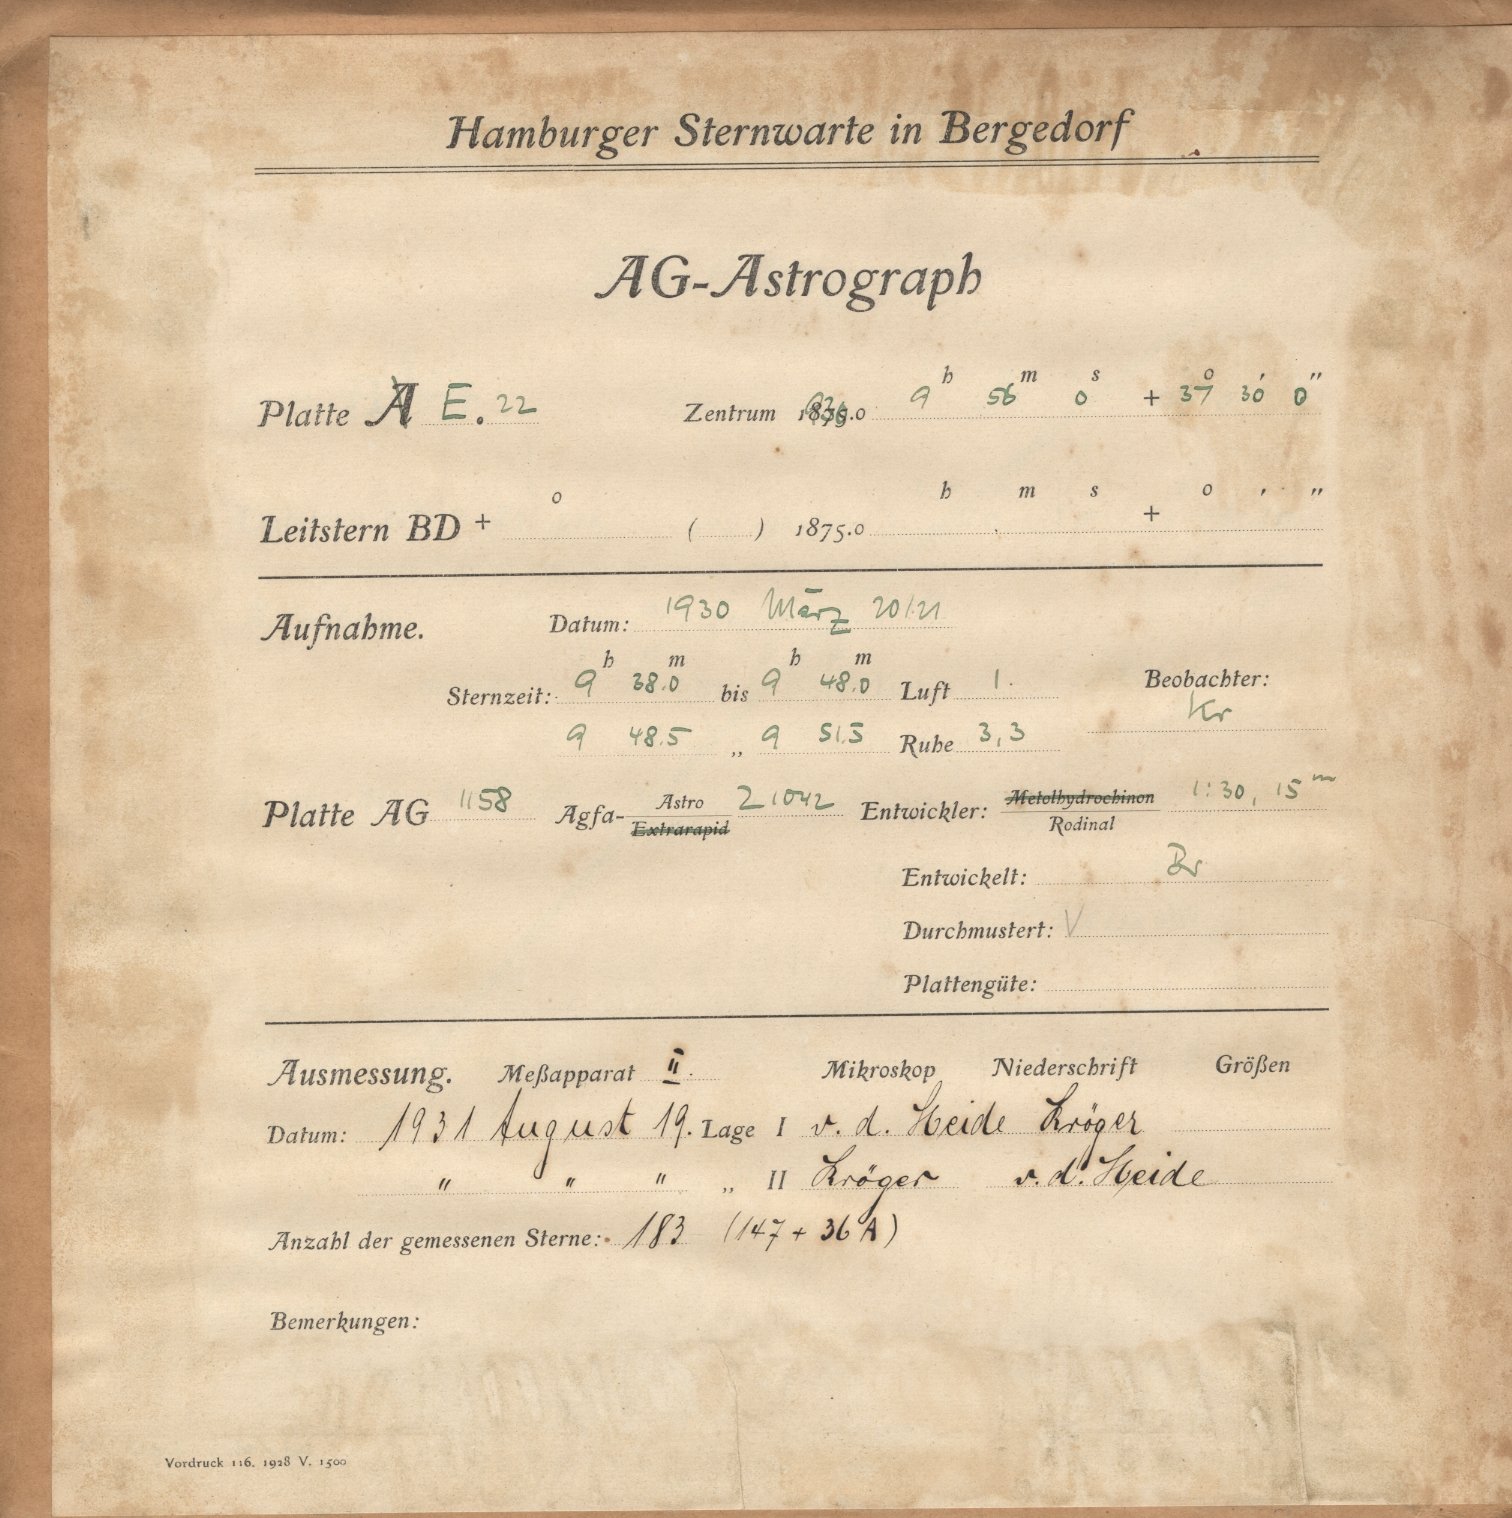 Hamburger Sternwarte in Bergedorf
AG-Astrograph
h m s o ′ ″
Platte A E. 22 Zentrum 1875.0 9 56 0 + 37 30 0
o h m s o ′ ″
Leitstern BD + ( ) 1875.0 +
Aufnahme. Datum: 1930 März 20/21
h m h m
Sternzeit: 9 38.0 bis 9 48.0 Luft 1. Beobachter:
Kr
9 48.5 „ 9 51.5 Ruhe 3,3
Platte AG 1158 Agfa- Astro Extrarapid Z 1042 Entwickler: Metolhydrochinon Rodinal 1:30, 15 m
Entwickelt: Br
Durchmustert: V
Plattengüte:
Ausmessung. Meßapparat II. Mikroskop Niederschrift Größen
Datum: 1931 August 19. Lage I v. d. Heide Kröger
" " " „ II Kröger v. d. Heide
Anzahl der gemessenen Sterne: 183 (147 + 36 A)
Bemerkungen:
Vordruck 116. 1928 V. 1500